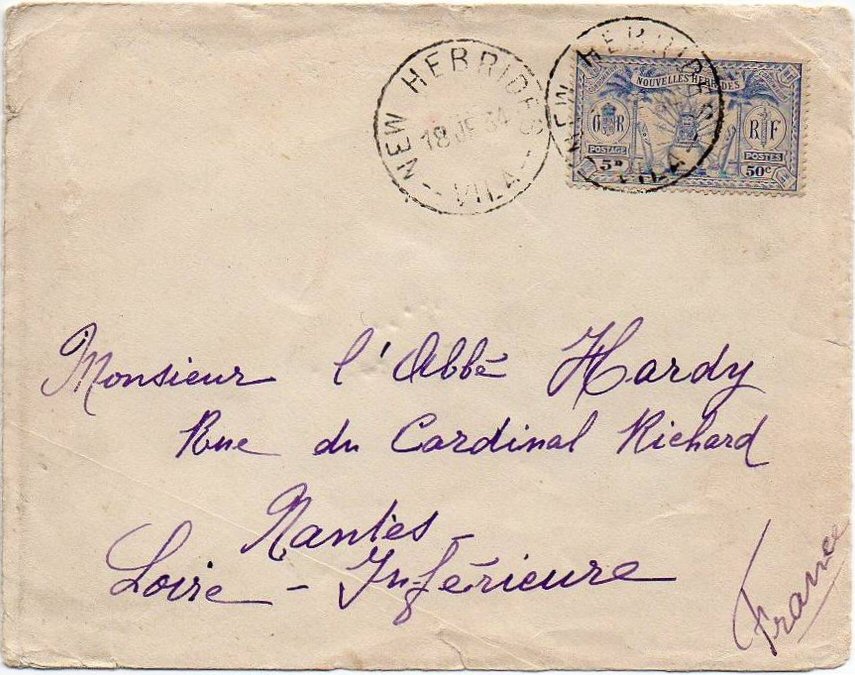 NEW HEBRIDES
18 JE 34
VILA
NEW HEBRIDES
VILA
NOUVELLES HEBRIDES
G R
R F
POSTAGE
POSTES
5ᴰ
50ᶜ
Monsieur l'Abbé Hardy
Rue du Cardinal Richard
Nantes -
Loire - Inférieure
France